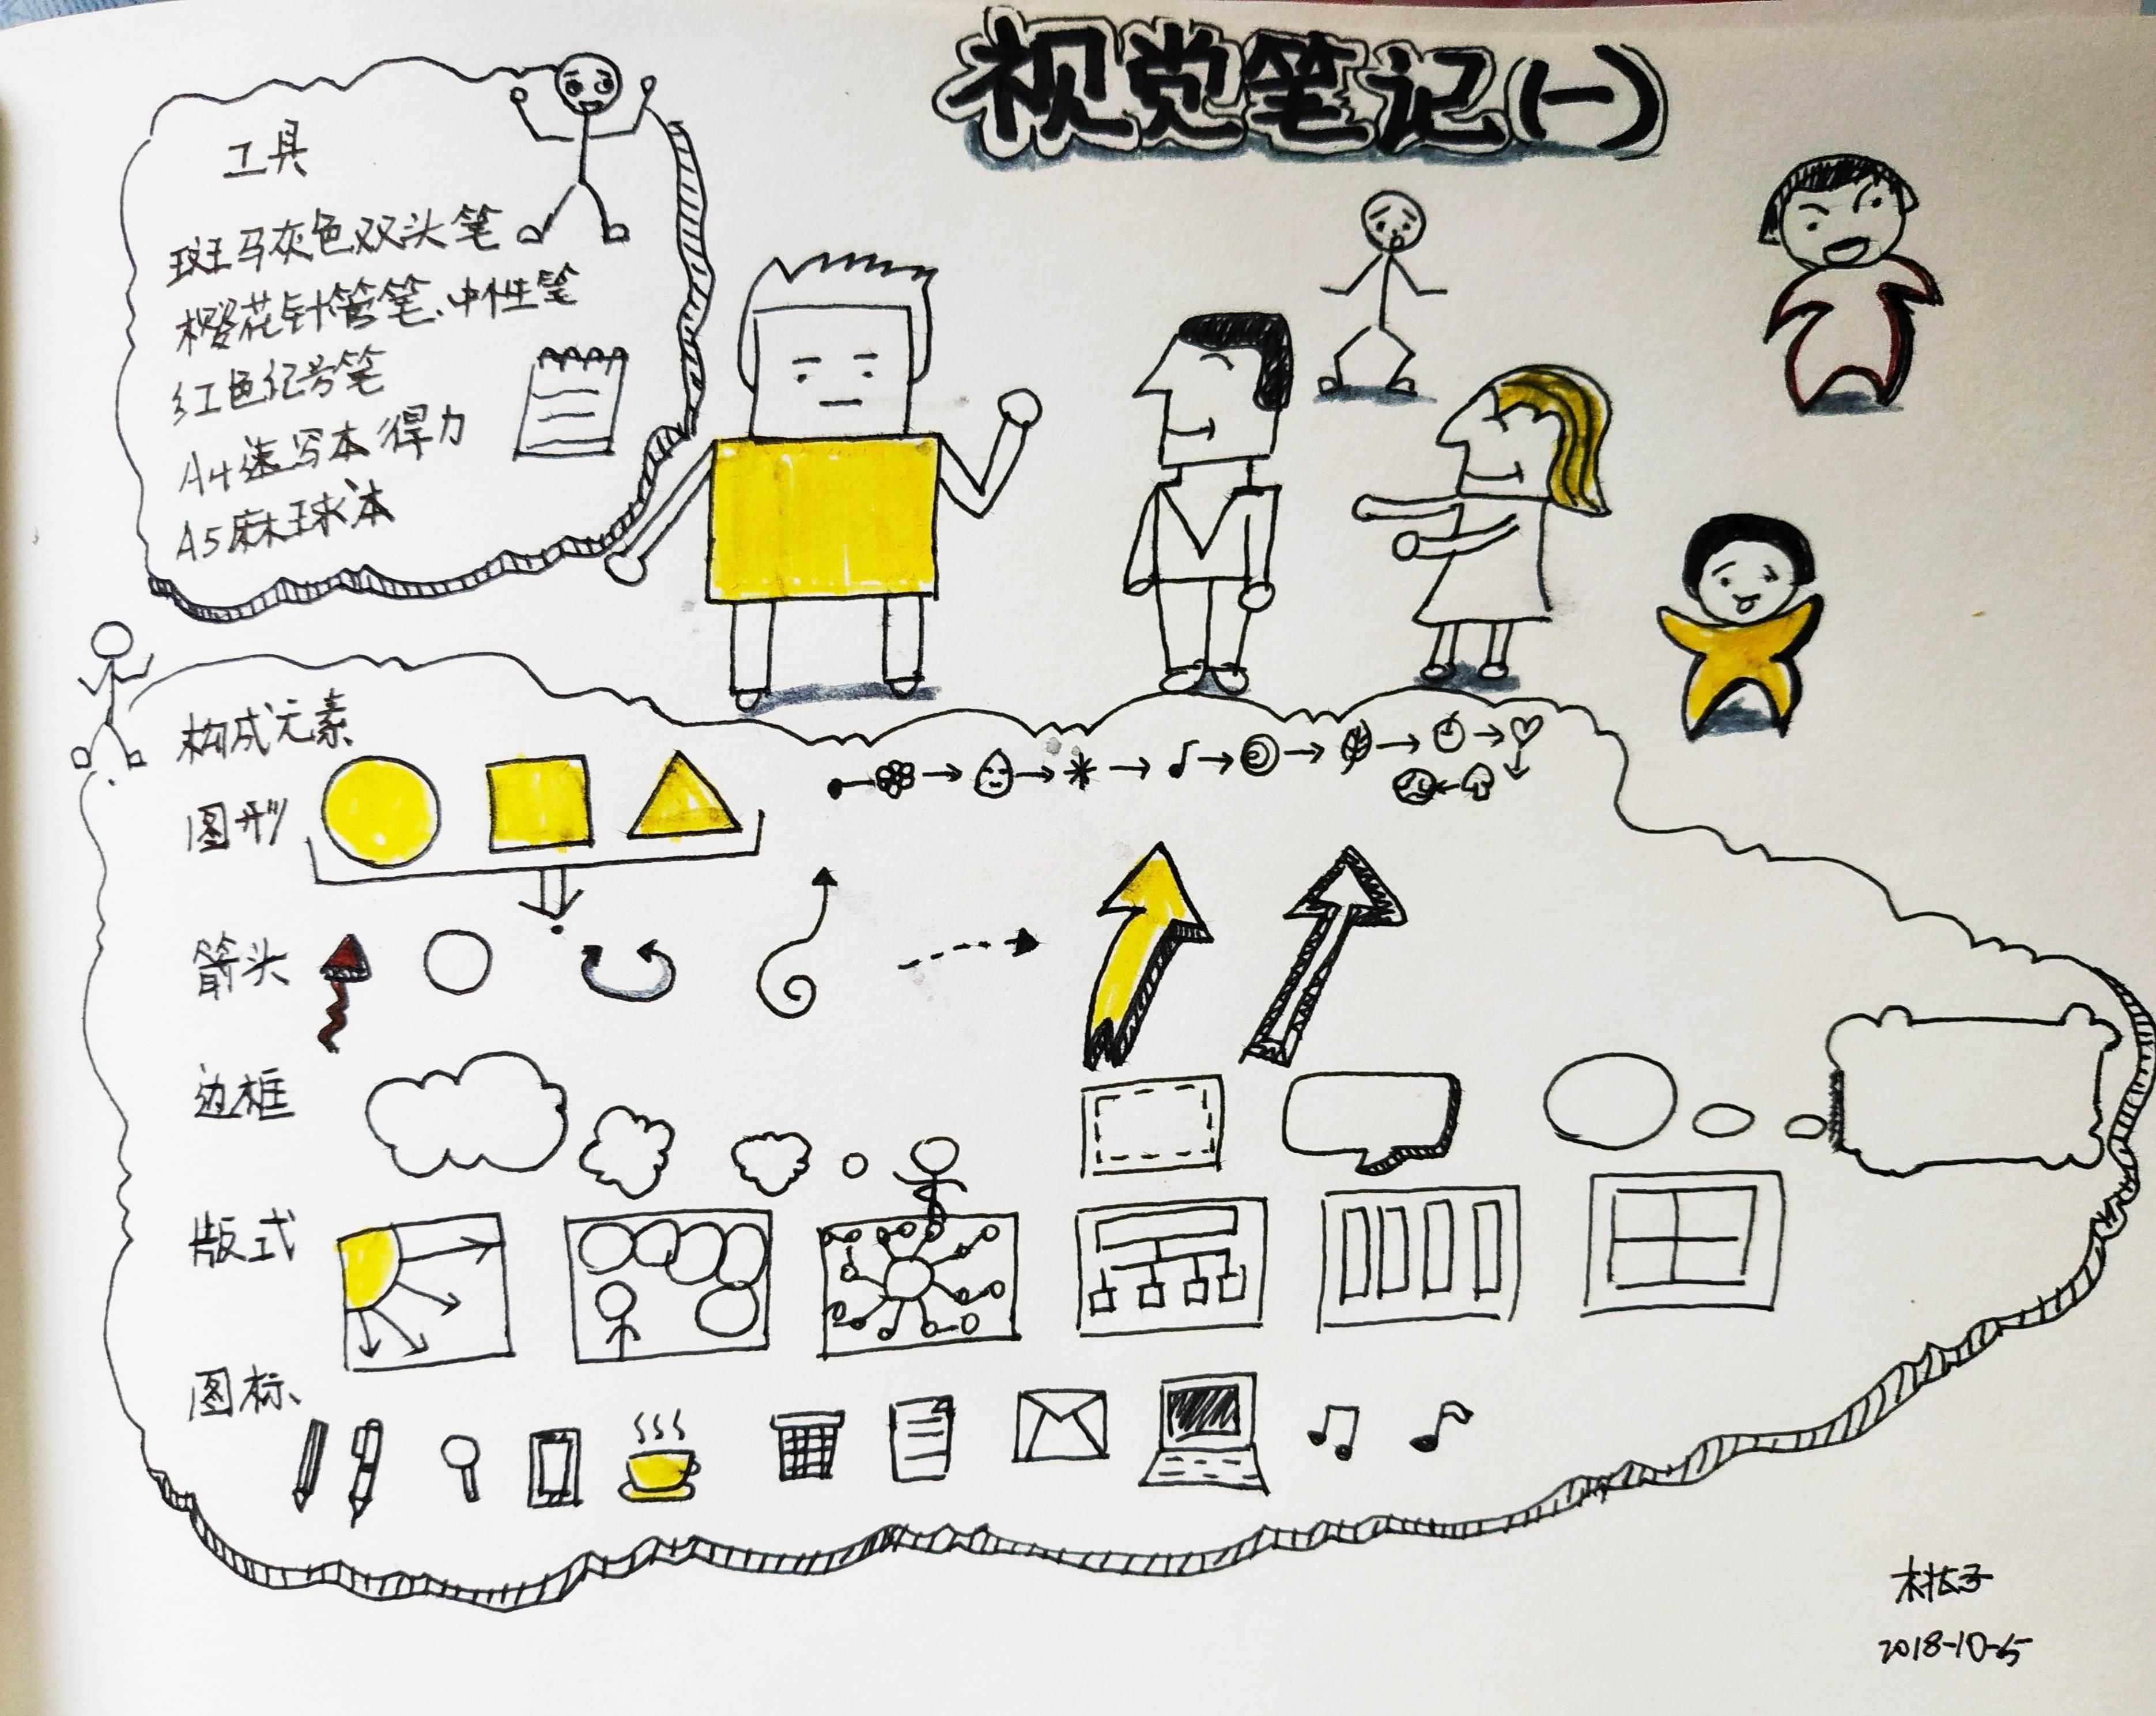 视觉笔记(一)
工具
斑马灰色双头笔
樱花针管笔、中性笔
红色记号笔
A4速写本 得力
A5麻球本
构成元素
图形
箭头
边框
版式
图标、
2018-10-5